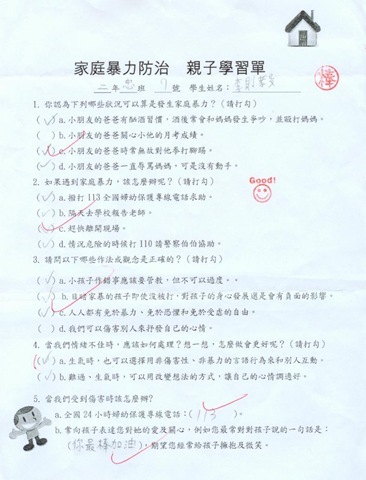 家庭暴力防治 親子學習單
二年忠班 7號 學生姓名：
1. 你認為下列哪些狀況可以算是發生家庭暴力？(請打勾)
(✓) a.小朋友的爸爸有酗酒習慣，酒後常會和媽媽發生爭吵，並毆打媽媽。
( ) b.小朋友的爸爸關心小他的月考成績。
(✓) c.小朋友的爸爸時常無故對他拳打腳踢。
(✓) d.小朋友的爸爸一直辱罵媽媽，可是沒有動手。
2. 如果遇到家庭暴力，該怎麼辦呢？(請打勾)
(✓) a.撥打113全國婦幼保護專線電話求助。
(✓) b.隔天去學校報告老師。
(✓) c.趕快離開現場。
(✓) d.情況危險的時候打110請警察伯伯協助。
Good!
3. 請問以下哪些作法或觀念是正確的？(請打勾)
(✓) a.小孩子作錯事應該要管教，但不可以過度。
(✓) b.目睹家暴的孩子即使沒被打，對孩子的身心發展還是會有負面的影響。
(✓) c.人人都有免於暴力、免於恐懼和免於受虐的自由。
( ) d.我們可以傷害別人來抒發自己的心情。
4. 當我們情緒不佳時，應該如何處理？想一想，怎麼做會更好呢？(請打勾)
(✓) a.生氣時，也可以選擇用非傷害性、非暴力的言語行為來和別人互動。
(✓) b.難過、生氣時，可以用改變想法的方式，讓自己的心情調適好。
5. 當我們受到傷害時該怎麼辦？
a.全國24小時婦幼保護專線電話：(113)。
b.常向孩子表達您對她的愛及關心，例如您最常對對孩子說的一句話是：
(你最棒加油)，期望您經常給孩子擁抱及微笑。